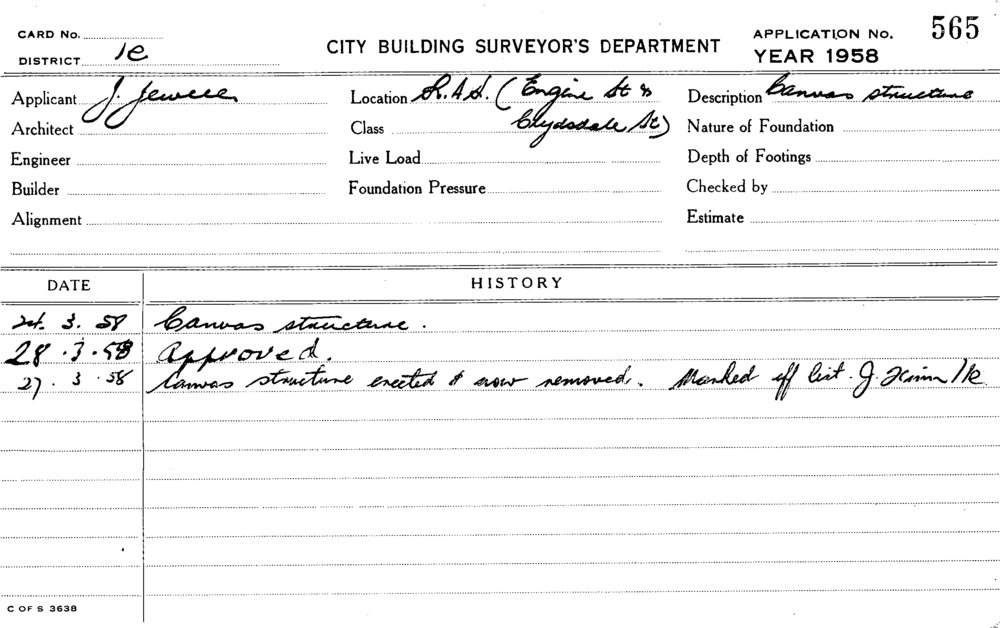 CARD No.
DISTRICT 1e
CITY BUILDING SURVEYOR'S DEPARTMENT
APPLICATION No. 565
YEAR 1958
Applicant J. Jeweller
Location R.A.S. (Engine St &
Description Canvas structure
Architect
Class Clydsdale St)
Nature of Foundation
Engineer
Live Load
Depth of Footings
Builder
Foundation Pressure
Checked by
Alignment
Estimate
DATE HISTORY
24. 3. 58 Canvas structure.
28.3.58 Approved.
27. 3. 58 Canvas structure erected & now removed. Marked off list. J.
C OF S 3638